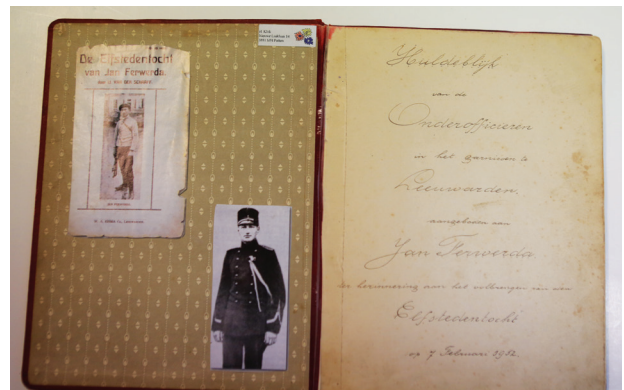 De Elfstedentocht
van Jan Ferwerda.
Huldeblijk
van de
Onderofficieren
in het garnizoen te
Leeuwarden,
aangeboden aan
Jan Ferwerda
ter herinnering aan het volbrengen van een
Elfstedentocht
op 7 Februari 1912.